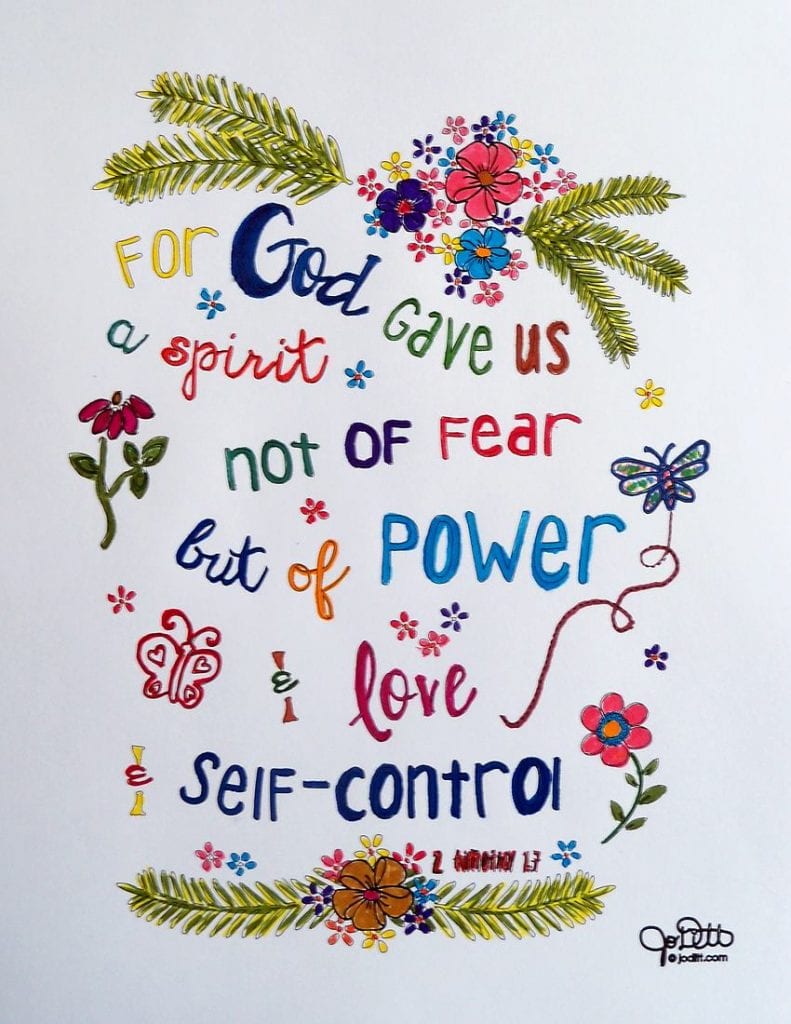 For God
gave us
a spirit
not of fear
but of Power
& love
& self-control
2 timothy 1:7
Jo Ditt
© joditt.com